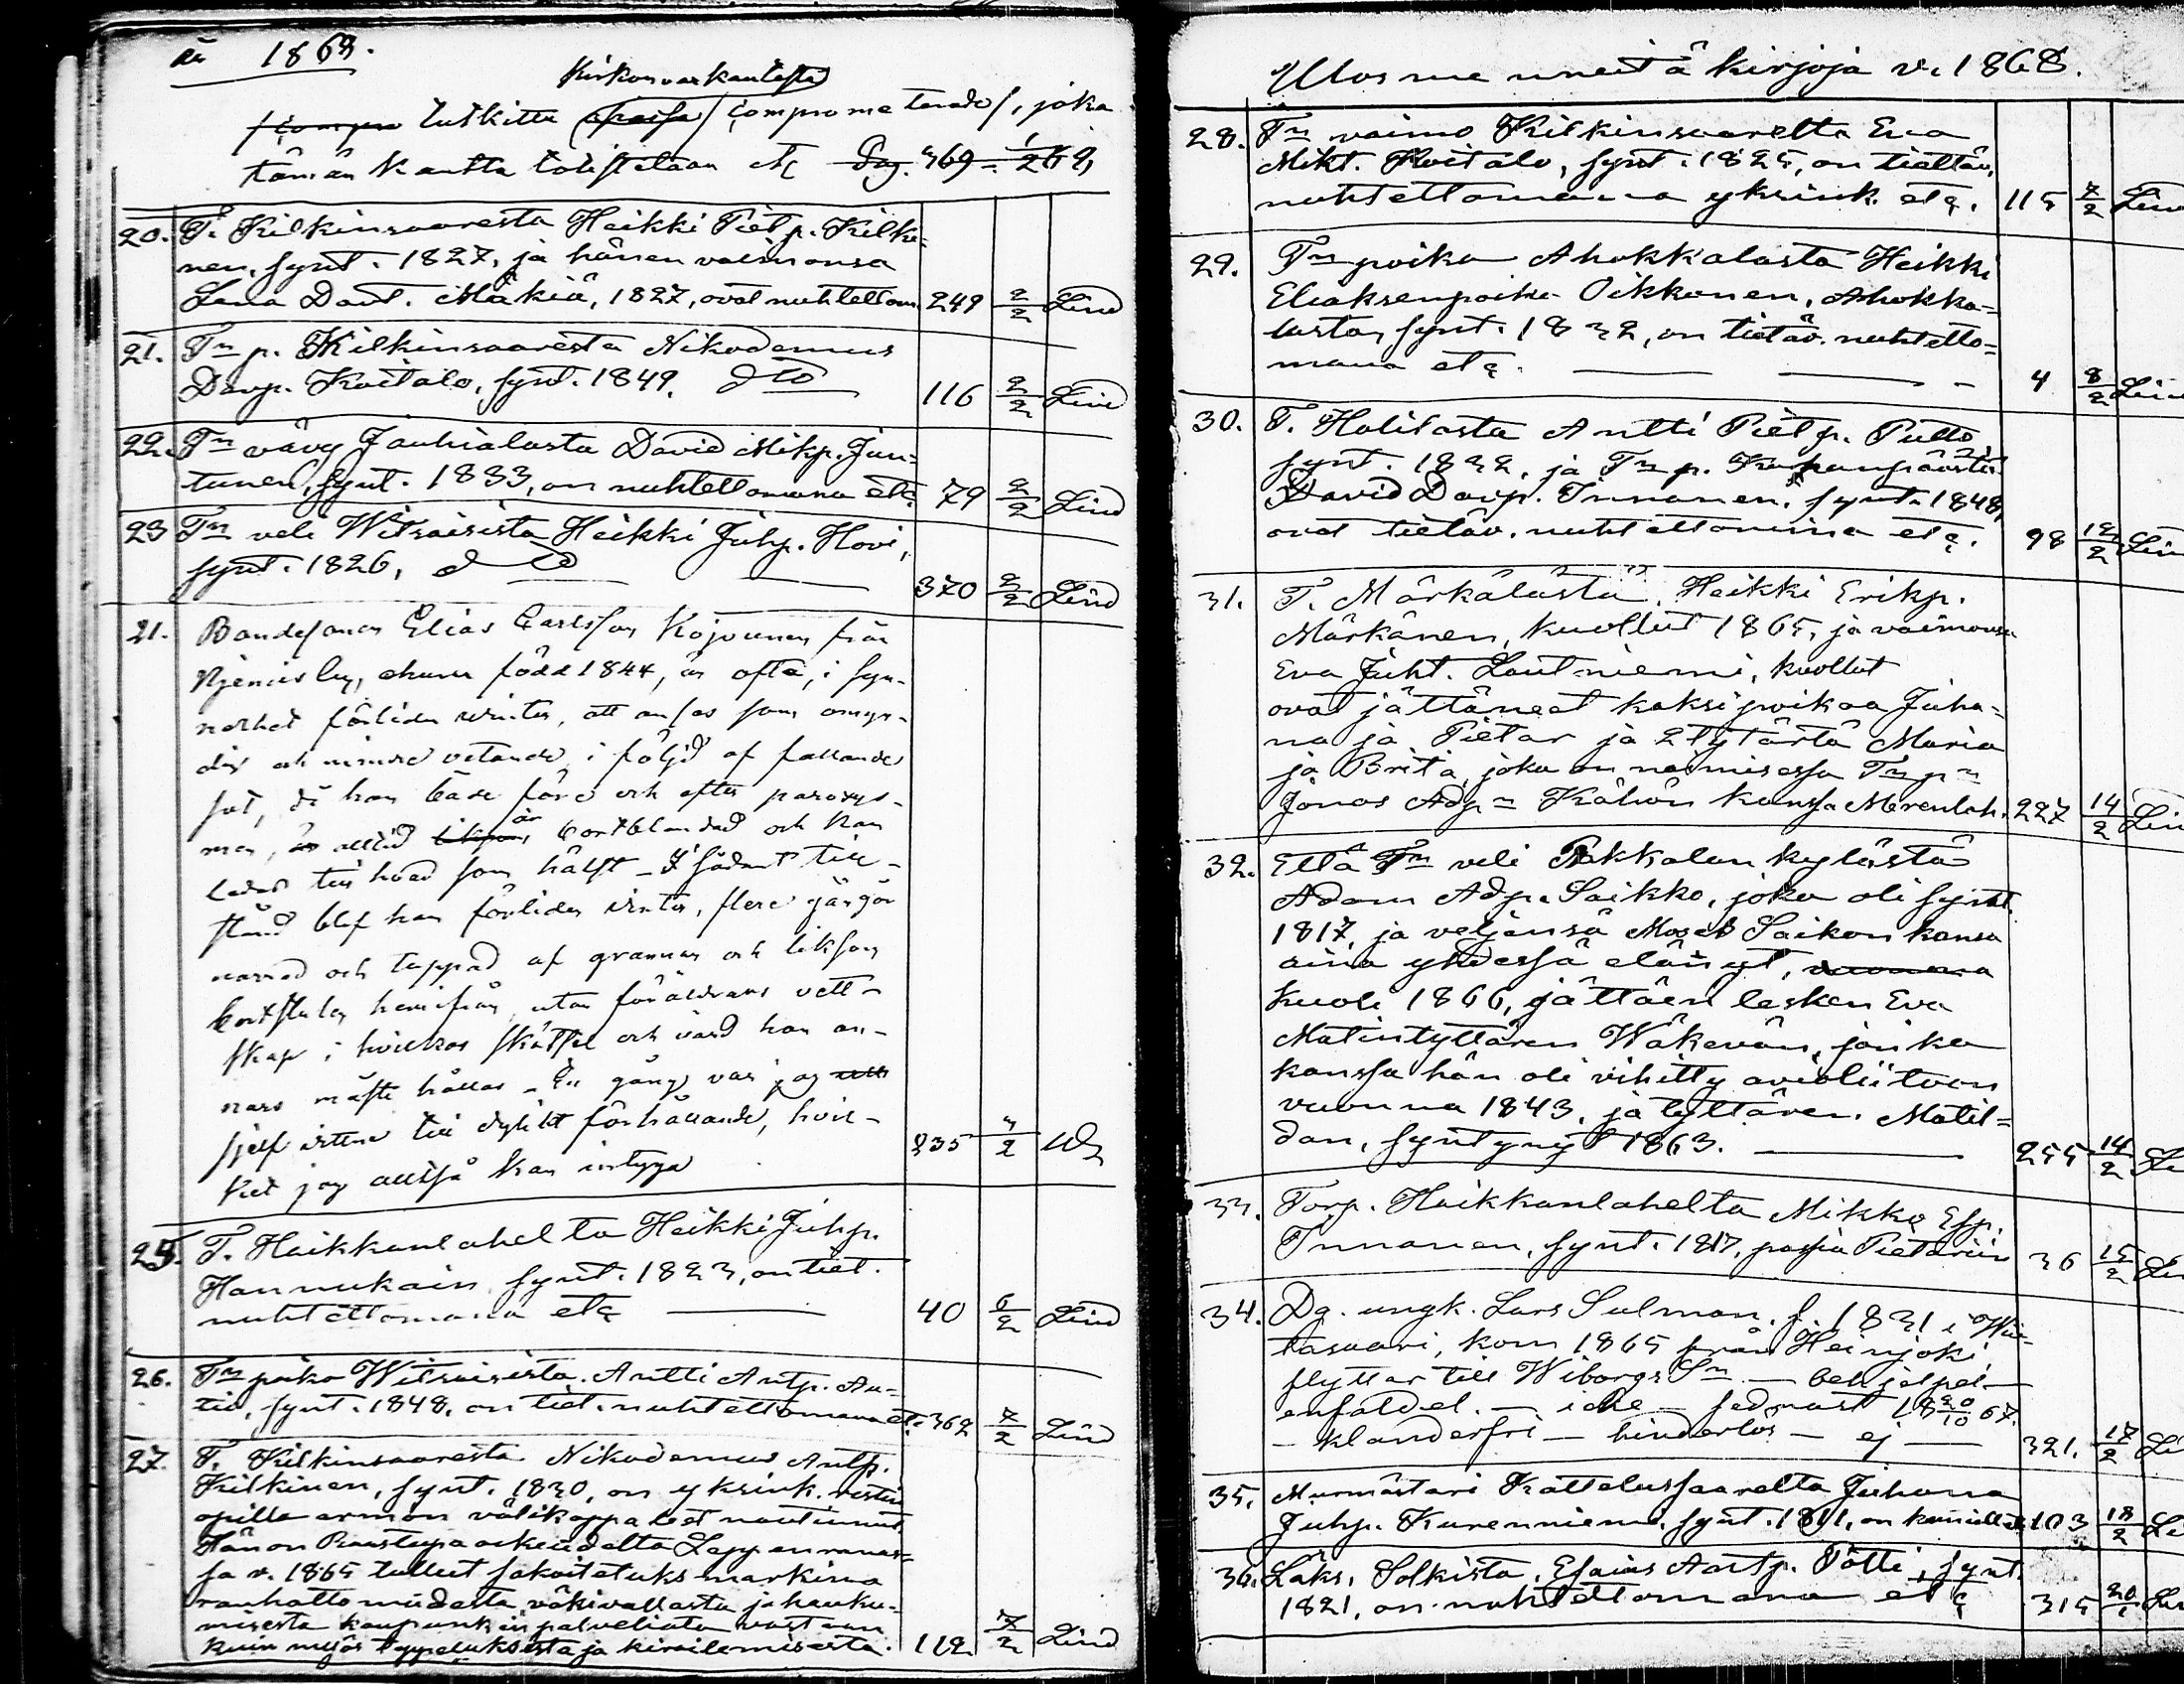 år 1868.
Kirkonvarkaudesta
tutkittu comprometerade, joka
tämän kautta todistetaan etc Pag. 369 - 1/2 68,
20. T. Kilkinsaaresta Heikki Piet p. Kilki-
nen, synt. 1827, ja hänen vaimonsa
Lena Davt. Mäkiä, 1827, ovat nuhtettom. 249 2/2 Lind
21. Tn p. Kilkinsaaresta Nikodemus
Davp. Koitalo, synt. 1849. dto 116 2/2 Lind
22. Tn vävy Jauhialasta David Mikp. Jun-
tunen, synt. 1833, on nuhtettomana etc. 79 2/2 Lind
23 Tn veli Witsaisista Heikki Juhp. Hovi,
synt. 1826, dto 370 2/2 Lind
21. Bondesonen Elias Carlsson Kojounen från
by, ehuru född 1844, är ofta, i syn-
nerhet förliden vinter, att anses som omyn-
dig och mindre vetande i följd af fallande
sot, då han både före och efter paroxys-
men, är alltid bortblandad och kan
ledas till hvad som hälst - I sådant till-
stånd blef han förliden vinter, flere gångor
narrad och tappad af grannar och liksom
bortstulen hemifrån, utan föräldrars vett-
skap i hvilkas skötsel och vård han an-
nars måste hållas - En gång var jag
sjelf vittne till dylikt förhållande, hvil-
ket jag alltså kan intyga 235 4/2
25. T. Haikkanlahelta Heikki Juhp.
Hannukain synt. 1823, on tiet.
nuhtettomana etc 40 6/2 Lind
26. Tn poika Witsaisista Antti Antp. Au-
tio, synt. 1848, on tiet. nuhtettomana etc. 362 7/2 Lind
27. T. Kilkinsaaresta Nikodemus Antp.
Kilkinen, synt. 1830, on yksink. ristin
opilla armon välikappalest nautinnut.
Hän on Raastupa oikeudelta Lappenranas-
sa v. 1865 tullut sakoitetuks markina
rauhattomuudesta, väkivallasta ja haukku-
misesta kaupunkin palvelioita vastaan
kuin myös ja kiroilemisesta. 112 7/2 Lind
Ulosmenneitä kirjoja v. 1868.
28. Tn vaimo Kilkinsaarelta Eva
Mikt. Koitalo, synt. 1825, on tiettäv.
nuhtettomana yksink. etc. 115 7/2 Lind
29. Tn poika Ahokkalasta Heikki
Eliaksenpoika Oikkonen, Ahokka-
lasta, synt. 1832, on tietäv. nuhtetto-
mana etc. 4 8/2 Lind
30. T. Halilasta Antti Piet p. Pullo,
synt. 1822, ja Tn p. Kurpanpäästä
David Davp. Innanen, synt. 1848,
ovat tietäv. nuhtettomina etc. 98 12/2 Lind
31. T. Märkälästä, Heikki Erikp.
Märkänen, kuollut 1865, ja vaimonsa
Eva Juht. Lautniemi, kuollut
ovat jättäneet kaksi poikaa Juha-
na ja Pietar ja 2 tytärtä Maria
ja Brita, joka on naimisessa Tn pn
Jonas Adpn Kähön kanssa Merenlah. 227 14/2 Lind
32. Että Tn veli Pakkalan kylästä
Adam Adp. Saikko, joka oli synt.
1817, ja veljensä Moses Saikon kansa
aina yhdessä elänyt,
kuoli 1866, jättäen lesken Eva
Matintyttären Wäkevän, jonka
kanssa hän oli vihitty avioliitoon
vuonna 1843, ja tyttären Matil-
dan, syntynyt 1863. 255 14/2 Li
33. Torp. Haikkanlahelta Mikko Esp.
Innanen, synt. 1817, passia Pietariin 36 15/2 Lin
34. Dg. ungk. Lars Sulman, f. 1831 i Wii-
tasaari, kom 1865 från Heinjoki,
flyttar till Wiborgs Sn - behjelpel.-
enfaldel. - icke - sednast 18 20/10 67.
- klanderfri - hinderlös - ej 321. 17/2 Li
35. Murmästari Kattelussaarelta Juhana
Juhp. Kurenniemi, synt. 1811, on 103 18/2 Li
36. Läks. Solkista, Esaias Antp. Pötti, synt.
1821, on nuhtettomana etc 315 20/1 Lin